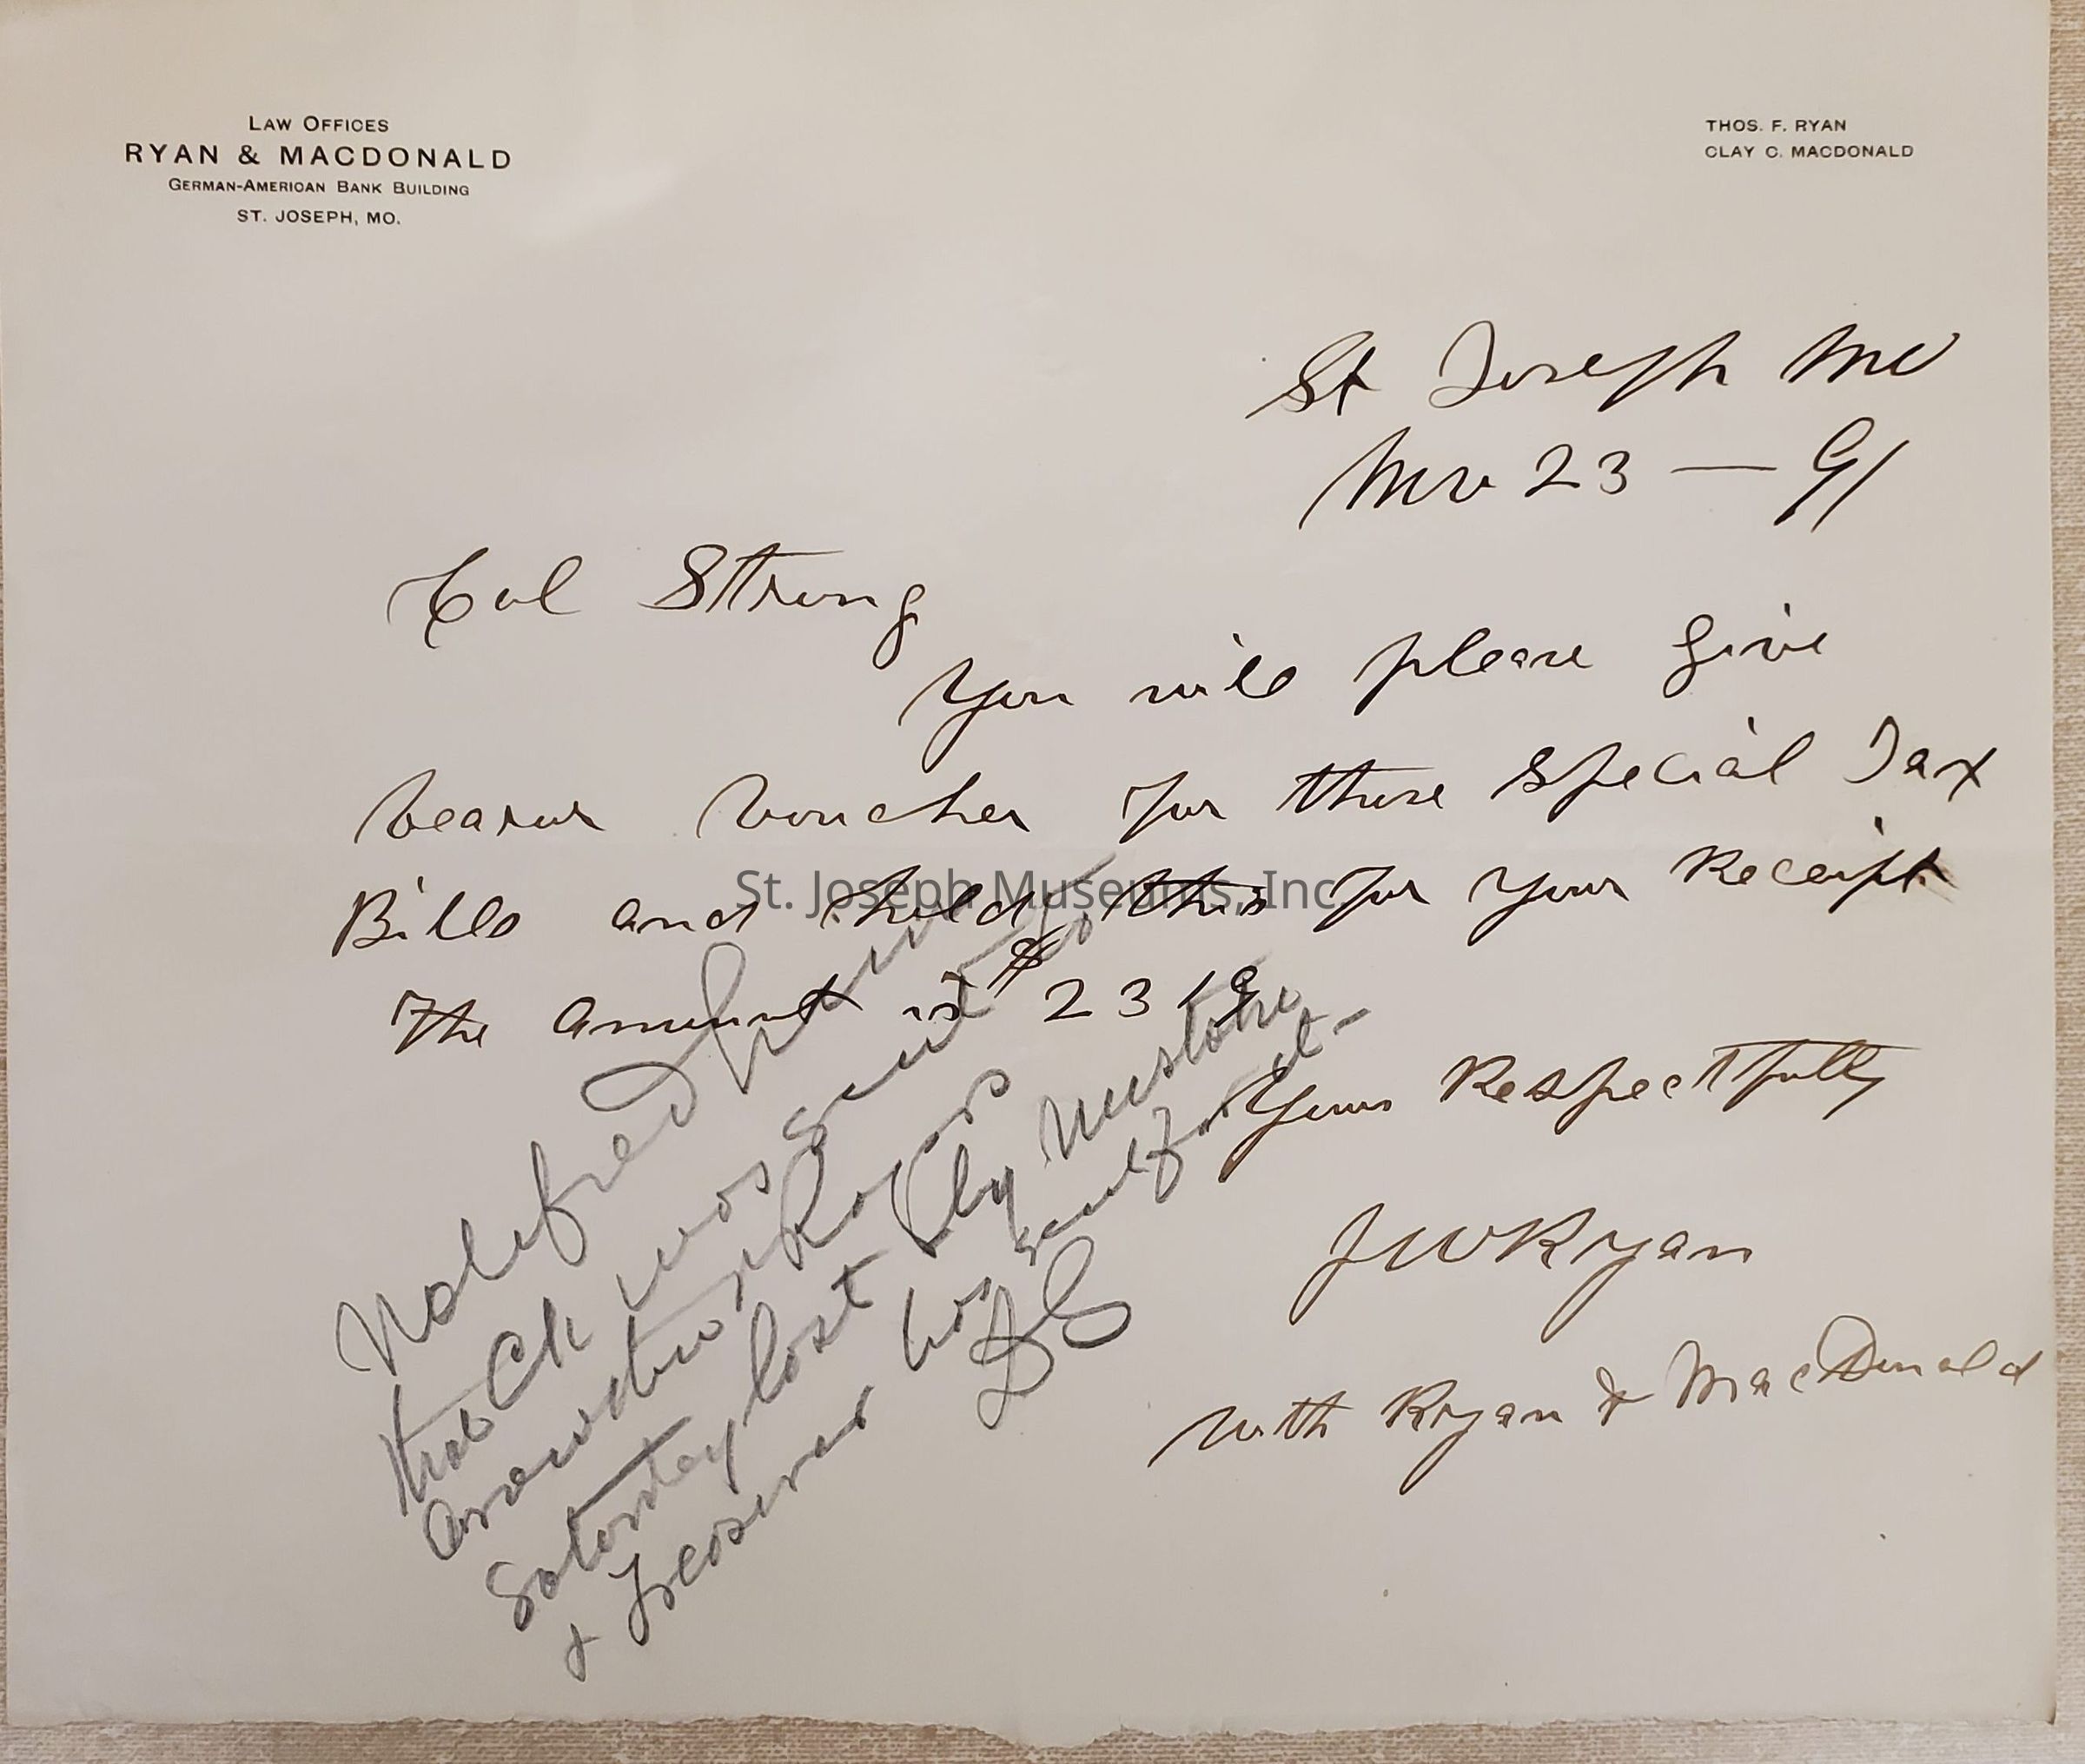 LAW OFFICES
RYAN & MACDONALD
GERMAN-AMERICAN BANK BUILDING
ST. JOSEPH, MO.
THOS. F. RYAN
CLAY C. MACDONALD
St Joseph Mo
Nov 23 — 91
Col Strong
You will please give
bearer voucher for those special Tax
Bills and hold this for your Receipt
The amount is $23 19
Yours Respectfully
J W Ryan
with Ryan & MacDonald
Notified
that Ck was sent to
Rogers
Saturday last by
& Treasurer has
St. Joseph Museums, Inc.